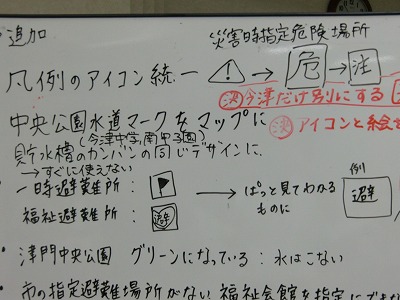 ・追加
災害時指定危険場所
凡例のアイコン統一 ⚠ → 危 → 注
淡 今津だけ別にする
中央公園水道マークをマップに
淡 アイコンと絵を
(今津中学,南甲子園)
貯水槽のカンバンの同じデザインに
→すぐに使えない
一時避難所: → ぱっと見てわかるものに
例) 避
福祉避難所: 避
・津門中央公園 グリーンになっている:水はこない
・市の指定避難場所がない 福祉会館を指定にできな